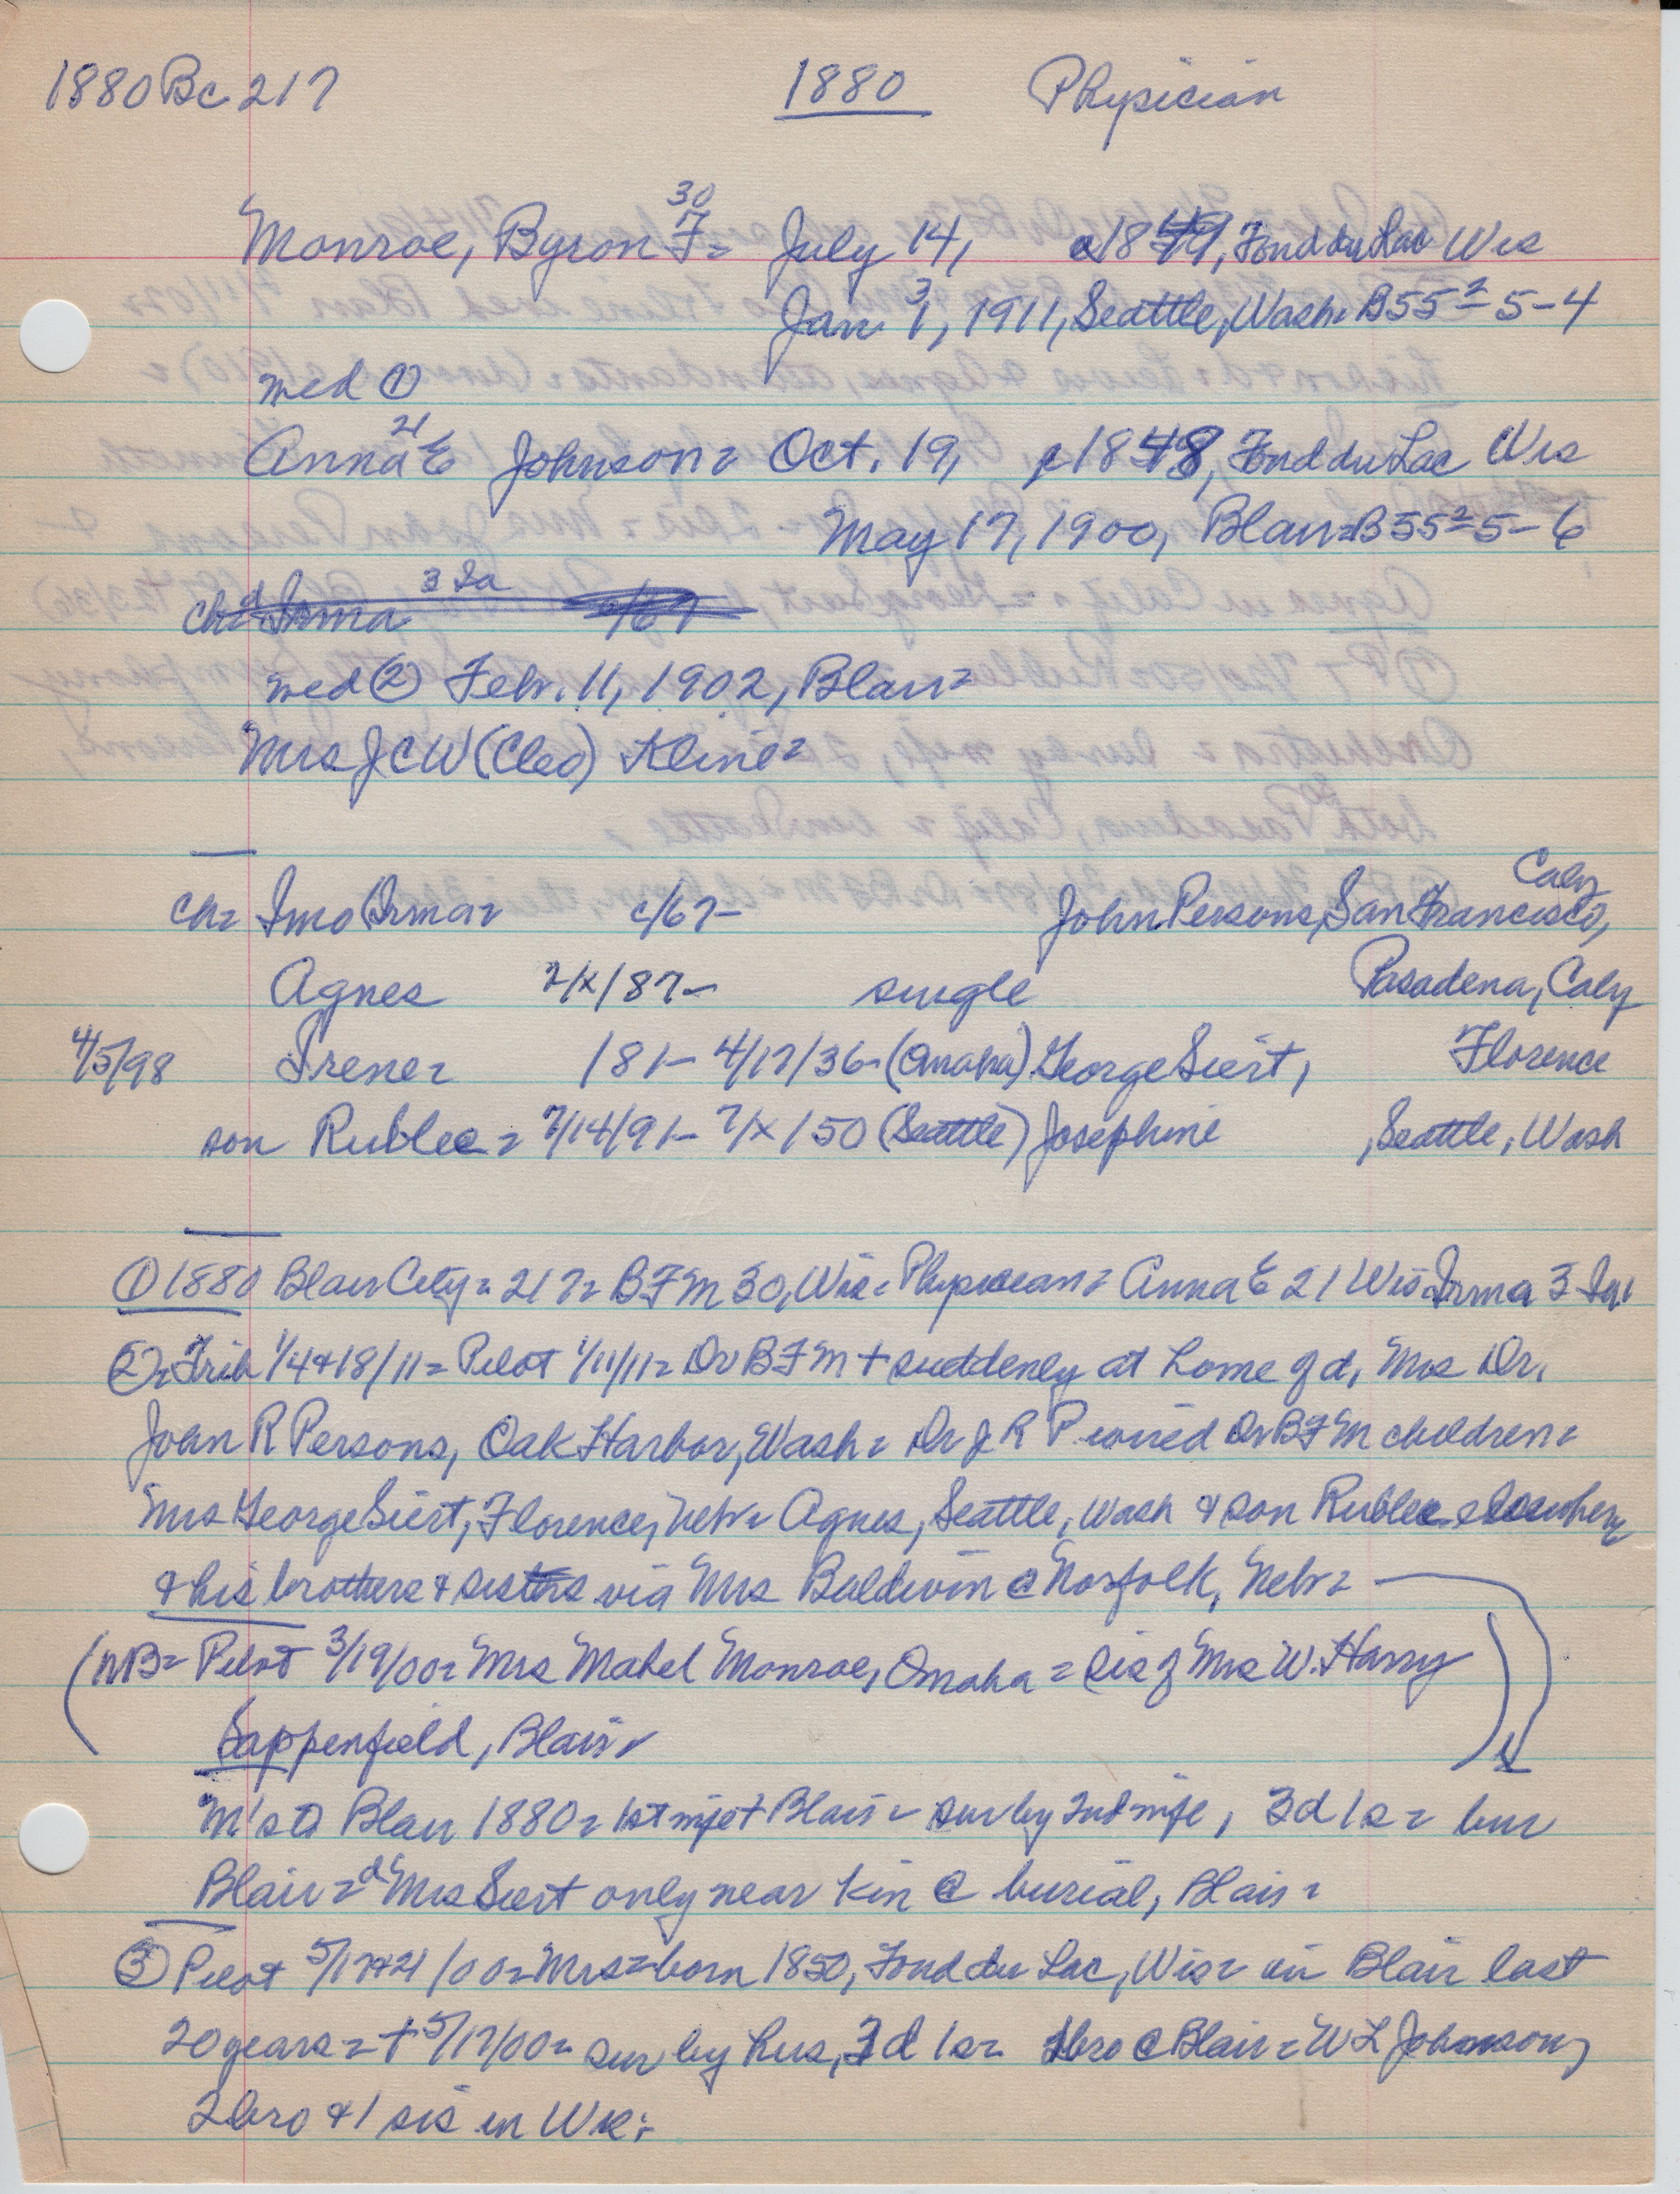 1880 Bc 217 1880 Physician
30
Monroe, Byron F= July 14, c1849, Fond du Lac Wis
Jan 3, 1911, Seattle, Wash= B55²=5-4
med ①
21
Anna E Johnson= Oct. 19, c1848, Fond du Lac Wis
May 17, 1900, Blair=B55²=5-6
ch= d Irma 3 Ia
med ② Febr. 11, 1902, Blair=
Mrs J C W (Cleo) Kline=
Calif
ch= Imo Irma= c/67- John Persons, San Francisco,
Agnes 2/x/87- single Pasadena, Calif
4/5/98 Irene= /81- 4/17/36- (Omaha) George Siert, Florence
son Rublee= 7/14/91- 7/x/50 (Seattle) Josephine , Seattle, Wash
① 1880 Blair City= 217= BFM 30, Wis= Physician= Anna E 21 Wis= Irma 3 Ia=
②= Trib 1/4+18/11= Pilot 1/11/11= Dr BFM + suddenly at home of d, Mrs Dr.
John R Persons, Oak Harbor, Wash= Dr J R P wired Dr BFM children=
Mrs George Siert, Florence, Nebr= Agnes, Seattle, Wash & son Rublee elsewhere
& his brothers & sisters via Mrs Baldwin @ Norfolk, Nebr=
(NB= Pilot 3/19/00= Mrs Mabel Monroe, Omaha = sis of Mrs W. Harry
Sappenfield, Blair=)
M's to Blair 1880= 1st wife + Blair= sur by 2nd wife, 3d 1s= bur
Blair= d Mrs Siert only near kin @ burial, Blair=
③ Pilot 5/17+21/00= Mrs= born 1850, Fond du Lac, Wis= in Blair last
20 years= + 5/17/00= sur by hus, 3d 1s= 1bro @ Blair= W L Johnson,
2bro & 1 sis in Wis=